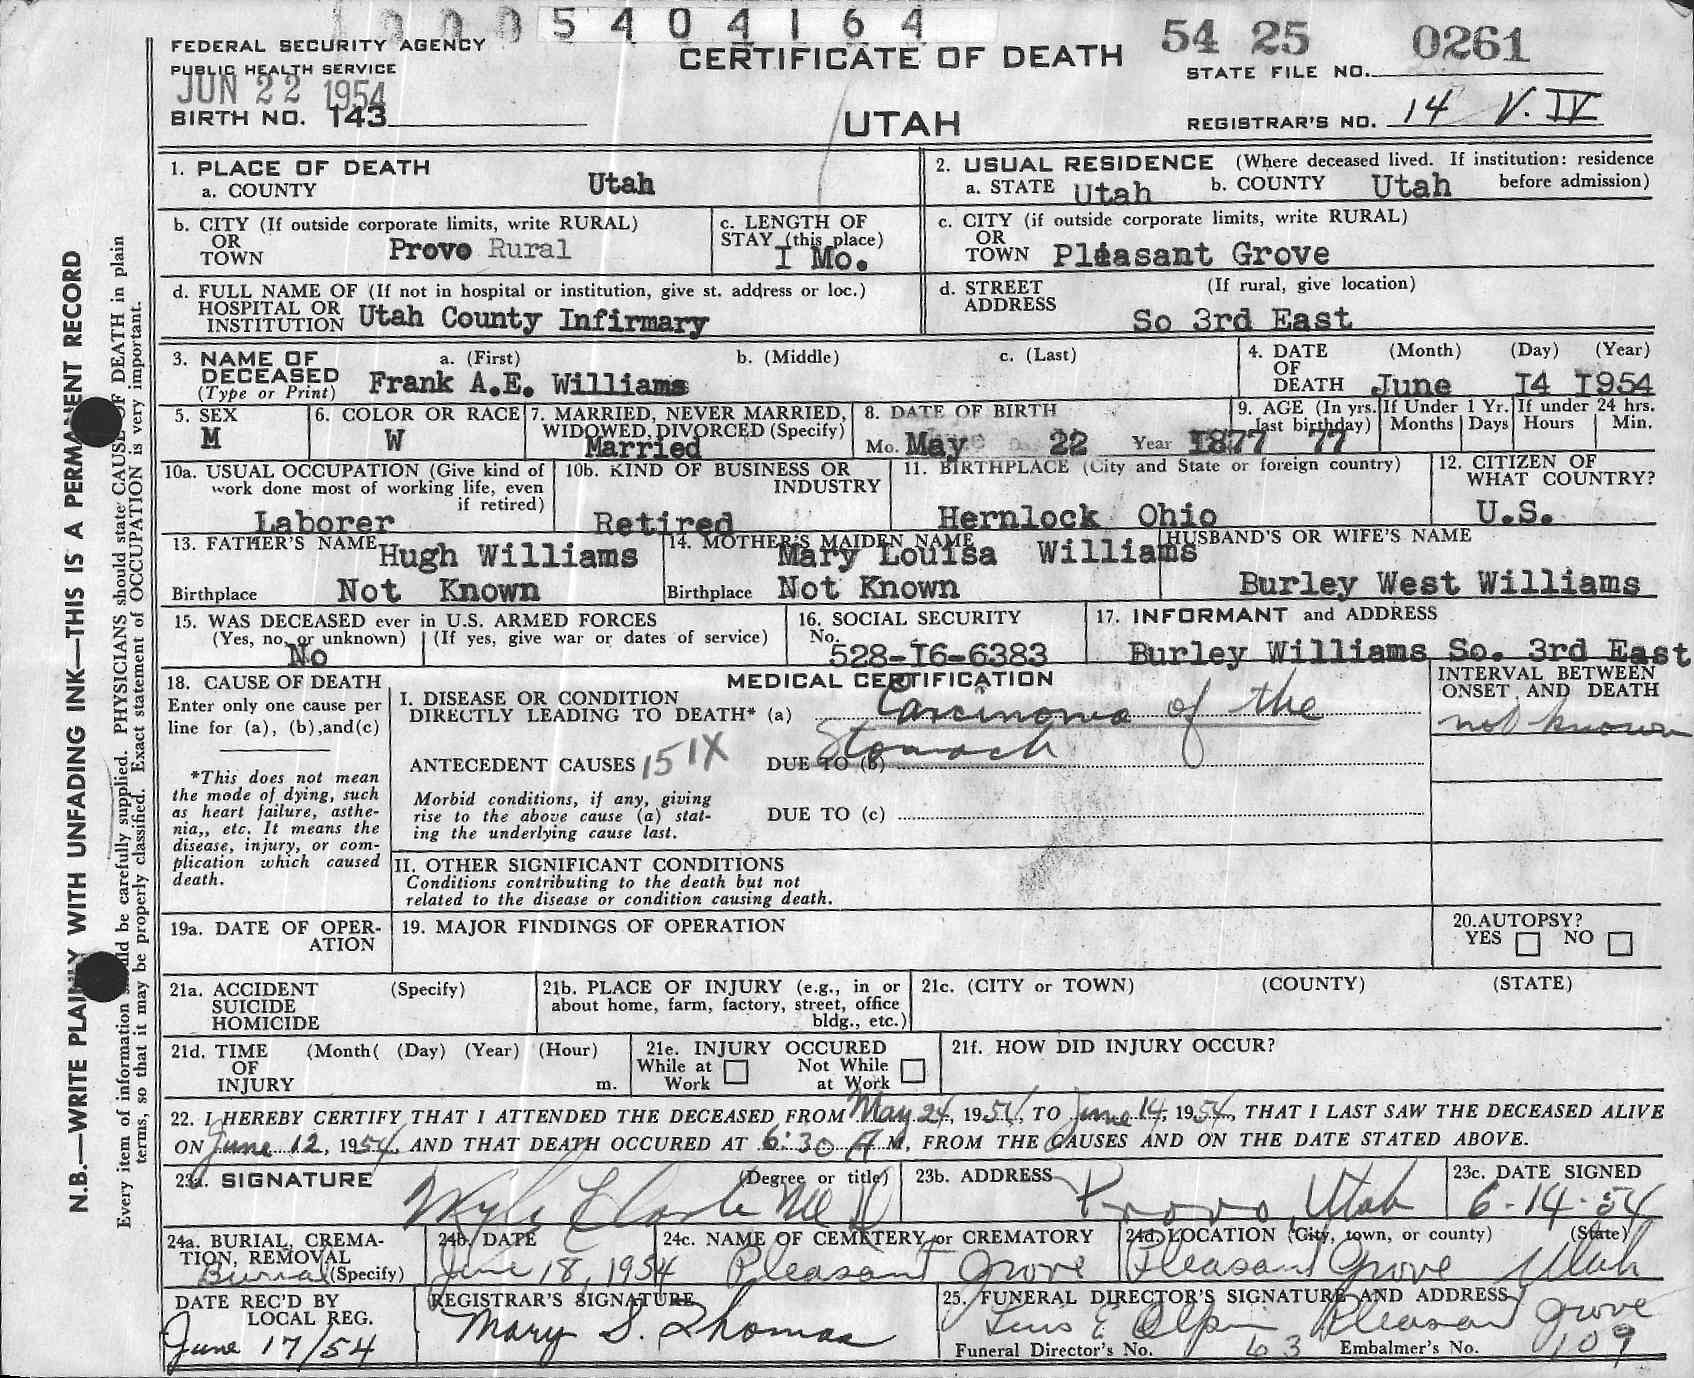 1000 5404164
FEDERAL SECURITY AGENCY
PUBLIC HEALTH SERVICE
JUN 22 1954
BIRTH NO. 143
CERTIFICATE OF DEATH
UTAH
54 25 0261
STATE FILE NO.
REGISTRAR'S NO. 14 V. IV
1. PLACE OF DEATH
a. COUNTY Utah
2. USUAL RESIDENCE (Where deceased lived. If institution: residence before admission)
a. STATE Utah b. COUNTY Utah
b. CITY (If outside corporate limits, write RURAL)
OR
TOWN Provo Rural
c. LENGTH OF
STAY (this place)
I Mo.
c. CITY (if outside corporate limits, write RURAL)
OR
TOWN Pleasant Grove
d. FULL NAME OF (If not in hospital or institution, give st. address or loc.)
HOSPITAL OR
INSTITUTION Utah County Infirmary
d. STREET (If rural, give location)
ADDRESS
So 3rd East
3. NAME OF a. (First) b. (Middle) c. (Last)
DECEASED
(Type or Print) Frank A.E. Williams
4. DATE (Month) (Day) (Year)
OF
DEATH June I4 I954
5. SEX
M
6. COLOR OR RACE
W
7. MARRIED, NEVER MARRIED,
WIDOWED, DIVORCED (Specify)
Married
8. DATE OF BIRTH
Mo. May 22 Year I877
9. AGE (In yrs. last birthday) 77
If Under 1 Yr.
Months Days
If under 24 hrs.
Hours Min.
10a. USUAL OCCUPATION (Give kind of
work done most of working life, even
if retired)
Laborer
10b. KIND OF BUSINESS OR
INDUSTRY
Retired
11. BIRTHPLACE (City and State or foreign country)
Hernlock Ohio
12. CITIZEN OF
WHAT COUNTRY?
U.S.
13. FATHER'S NAME Hugh Williams
Birthplace Not Known
14. MOTHER'S MAIDEN NAME
Mary Louisa Williams
Birthplace Not Known
HUSBAND'S OR WIFE'S NAME
Burley West Williams
15. WAS DECEASED ever in U.S. ARMED FORCES
(Yes, no, or unknown) (If yes, give war or dates of service)
No
16. SOCIAL SECURITY
No.
528-I6-6383
17. INFORMANT and ADDRESS
Burley Williams So. 3rd East
18. CAUSE OF DEATH
Enter only one cause per
line for (a), (b),and(c)
*This does not mean
the mode of dying, such
as heart failure, asthe-
nia,, etc. It means the
disease, injury, or com-
plication which caused
death.
MEDICAL CERTIFICATION
I. DISEASE OR CONDITION
DIRECTLY LEADING TO DEATH* (a) Carcinoma of the
Stomach
ANTECEDENT CAUSES 151X DUE TO (b)
Morbid conditions, if any, giving
rise to the above cause (a) stat-
ing the underlying cause last.
DUE TO (c)
II. OTHER SIGNIFICANT CONDITIONS
Conditions contributing to the death but not
related to the disease or condition causing death.
INTERVAL BETWEEN
ONSET AND DEATH
not known
19a. DATE OF OPER-
ATION
19. MAJOR FINDINGS OF OPERATION
20. AUTOPSY?
YES NO
21a. ACCIDENT (Specify)
SUICIDE
HOMICIDE
21b. PLACE OF INJURY (e.g., in or
about home, farm, factory, street, office
bldg., etc.)
21c. (CITY or TOWN) (COUNTY) (STATE)
21d. TIME (Month( (Day) (Year) (Hour)
OF
INJURY m.
21e. INJURY OCCURED
While at Work Not While at Work
21f. HOW DID INJURY OCCUR?
22. I HEREBY CERTIFY THAT I ATTENDED THE DECEASED FROM May 24, 1954, TO June 14, 1954, THAT I LAST SAW THE DECEASED ALIVE
ON June 12, 1954, AND THAT DEATH OCCURED AT 6:30 A M, FROM THE CAUSES AND ON THE DATE STATED ABOVE.
23a. SIGNATURE (Degree or title)
23b. ADDRESS
Provo, Utah
23c. DATE SIGNED
6-14-54
24a. BURIAL, CREMA-
TION, REMOVAL
Burial (Specify)
24b. DATE
June 18, 1954
24c. NAME OF CEMETERY or CREMATORY
Pleasant Grove
24d. LOCATION (City, town, or county) (State)
Pleasant Grove Utah
DATE REC'D BY
LOCAL REG.
June 17/54
REGISTRAR'S SIGNATURE
Mary S. Thomas
25. FUNERAL DIRECTOR'S SIGNATURE AND ADDRESS
E Olpin Pleasant Grove
Funeral Director's No. 63 Embalmer's No. 109
N.B.—WRITE PLAINLY WITH UNFADING INK—THIS IS A PERMANENT RECORD
Every item of information should be carefully supplied. PHYSICIANS should state CAUSE OF DEATH in plain
terms, so that it may be properly classified. Exact statement of OCCUPATION is very important.